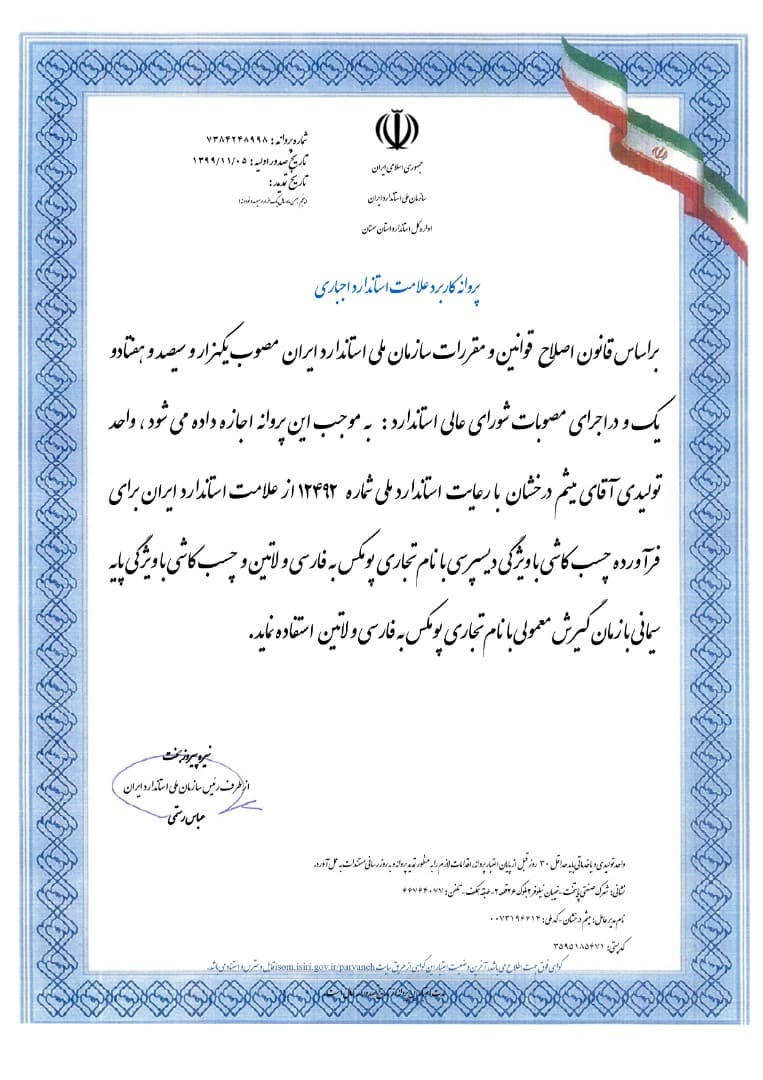 جمهوری اسلامی ایران
سازمان ملی استاندارد ایران
اداره کل استاندارد استان سمنان
شماره پروانه : ۷۳۸۴۲۴۸۹۹۸
تاریخ صدور اولیه : ۱۳۹۹/۱۱/۰۵
تاریخ تمدید :
پروانه کاربرد علامت استاندارد اجباری
براساس قانون اصلاح قوانین و مقررات سازمان ملی استاندارد ایران مصوب یکهزار و سیصد و هفتادو
یک و در اجرای مصوبات شورای عالی استاندارد : به موجب این پروانه اجازه داده می شود ، واحد
تولیدی آقای میثم درخشان با رعایت استاندارد ملی شماره ۱۲۴۹۲ از علامت استاندارد ایران برای
فرآورده چسب کاشی با ویژگی دیسپرسی با نام تجاری پومکس به فارسی و لاتین و چسب کاشی با ویژگی پایه
سیمانی با زمان گیرش معمولی با نام تجاری پومکس به فارسی و لاتین استفاده نماید.
نیره پیروزبخت
از طرف رئیس سازمان ملی استاندارد ایران
عباس رستمی
واحد تولیدی و یا خدماتی باید حداقل ۳۰ روز قبل از پایان اعتبار پروانه، اقدامات لازم را به منظور تمدید پروانه و به روز رسانی مستندات به عمل آورد.
نشانی : شهرک صنعتی پایتخت - خیابان نیلوفر ۲ بلوک ۲۶ قطعه ۲ - طبقه همکف - تلفن : ۶۶۷۶۴۰۷۷
نام مدیر عامل : میثم درخشان - کد ملی : ۰۰۷۳۱۹۶۶۱۴
کد پستی : ۳۵۹۵۱۸۵۶۷۱
گواهی فوق جهت اطلاع می باشد. آخرین وضعیت اعتبار این گواهی از طریق سایت isom.isiri.gov.ir/parvaneh قابل دسترس و استناد می باشد.